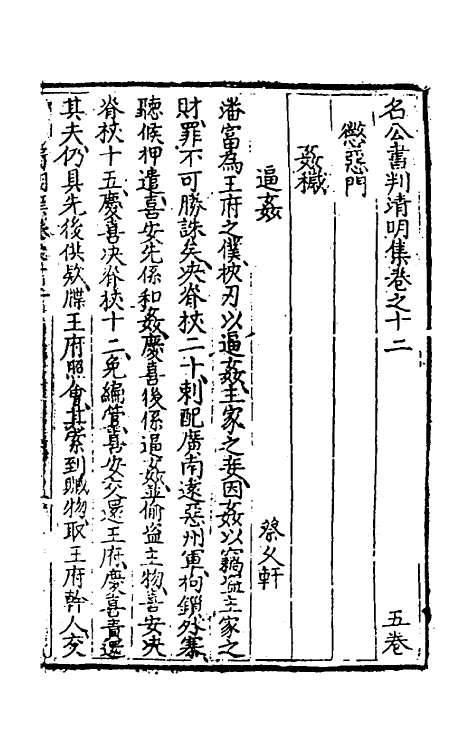 名公書判清明集卷之十二 五卷
懲惡門
姦穢
逼姦 蔡久軒
潘富為王府之僕挾刃以逼姦主家之妾因姦以竊盜主家之
財罪不可勝誅矣决脊杖二十刺配廣南遠惡州軍拘鎖外寨
聽候押遣喜安先係和姦慶喜後係逼姦並偷盜主物喜安决
脊杖十五慶喜决脊杖十二免編管喜安交還王府慶喜責還
其夫仍具先後供欵牒王府照會其索到贓物取王府幹人交